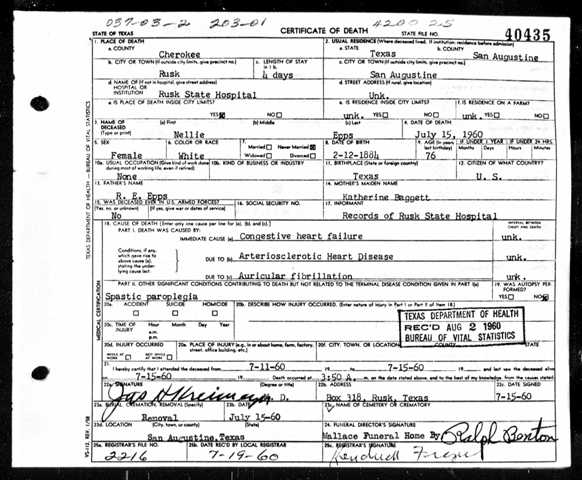 037-03-2 203-01 4200 25
STATE OF TEXAS CERTIFICATE OF DEATH STATE FILE NO. 40435
1. PLACE OF DEATH 2. USUAL RESIDENCE (Where deceased lived. If institution: residence before admission)
a. COUNTY a. STATE b. COUNTY
Cherokee Texas San Augustine
b. CITY OR TOWN (If outside city limits, give precinct no.) c. LENGTH OF STAY in 1 b. c. CITY OR TOWN (If outside city limits, give precinct no.)
Rusk 4 days San Augustine
d. NAME OF (If not in hospital, give street address) HOSPITAL OR INSTITUTION d. STREET ADDRESS (If rural, give location)
Rusk State Hospital Unk.
e. IS PLACE OF DEATH INSIDE CITY LIMITS? e. IS RESIDENCE INSIDE CITY LIMITS? f. IS RESIDENCE ON A FARM?
YES NO unk. YES NO unk. YES NO
3. NAME OF DECEASED (Type or print) (a) First (b) Middle (c) Last 4. DATE OF DEATH
Nellie Epps July 15, 1960
5. SEX 6. COLOR OR RACE 7. Married Never Married 8. DATE OF BIRTH 9. AGE (In years last birthday) IF UNDER 1 YEAR IF UNDER 24 HRS.
Female White Widowed Divorced 2-12-1884 76 Months Days Hours Min.
10a. USUAL OCCUPATION (Give kind of work done during most of working life, even if retired) 10b. KIND OF BUSINESS OR INDUSTRY 11. BIRTHPLACE (State or foreign country) 12. CITIZEN OF WHAT COUNTRY?
None Texas U. S.
13. FATHER'S NAME 14. MOTHER'S MAIDEN NAME
R. E. Epps Katherine Baggett
15. WAS DECEASED EVER IN U.S. ARMED FORCES? 16. SOCIAL SECURITY NO. 17. INFORMANT
(Yes, no, or unknown) (If yes, give war or dates of service)
No Records of Rusk State Hospital
18. CAUSE OF DEATH (Enter only one cause per line for (a), (b), and (c).) INTERVAL BETWEEN ONSET AND DEATH
PART I. DEATH WAS CAUSED BY:
IMMEDIATE CAUSE (a) Congestive heart failure unk.
Conditions, if any, which gave rise to above cause (a), stating the underlying cause last
DUE TO (b) Arteriosclerotic Heart Disease unk.
DUE TO (c) Auricular fibrillation unk.
PART II. OTHER SIGNIFICANT CONDITIONS CONTRIBUTING TO DEATH BUT NOT RELATED TO THE TERMINAL DISEASE CONDITION GIVEN IN PART I(a) 19. WAS AUTOPSY PERFORMED?
Spastic paroplegia YES NO
20a. ACCIDENT SUICIDE HOMICIDE 20b. DESCRIBE HOW INJURY OCCURRED. (Enter nature of injury in Part I or Part II of Item 18.)
20c. TIME OF INJURY Hour Month Day Year
a.m.
p.m.
TEXAS DEPARTMENT OF HEALTH
REC'D AUG 2 1960
BUREAU OF VITAL STATISTICS
20d. INJURY OCCURRED 20e. PLACE OF INJURY (e.g., in or about home, farm, factory, street, office building, etc.) 20f. CITY, TOWN, OR LOCATION COUNTY
WHILE AT WORK NOT WHILE AT WORK
21. I hereby certify that I attended the deceased from 7-11-60 19 to 7-15-60 19 and last saw the deceased alive
7-15-60 19 Death occurred at 3:50 A. m. on the date stated above; and to the best of my knowledge, from the causes stated.
22a. SIGNATURE (Degree or title) 22b. ADDRESS 22c. DATE SIGNED
M. D. Box 318, Rusk, Texas 7-15-60
23a. BURIAL, CREMATION, REMOVAL (Specify) 23b. DATE 23c. NAME OF CEMETERY OR CREMATORY
Removal July 15-60
23d. LOCATION (City, town, or county) (State) 24. FUNERAL DIRECTOR'S SIGNATURE
San Augustine, Texas Wallace Funeral Home By Ralph Benton
25a. REGISTRAR'S FILE NO. 25b. DATE REC'D BY LOCAL REGISTRAR 25c. REGISTRAR'S SIGNATURE
2216 7-19-60
TEXAS DEPARTMENT OF HEALTH — BUREAU OF VITAL STATISTICS
MEDICAL CERTIFICATION